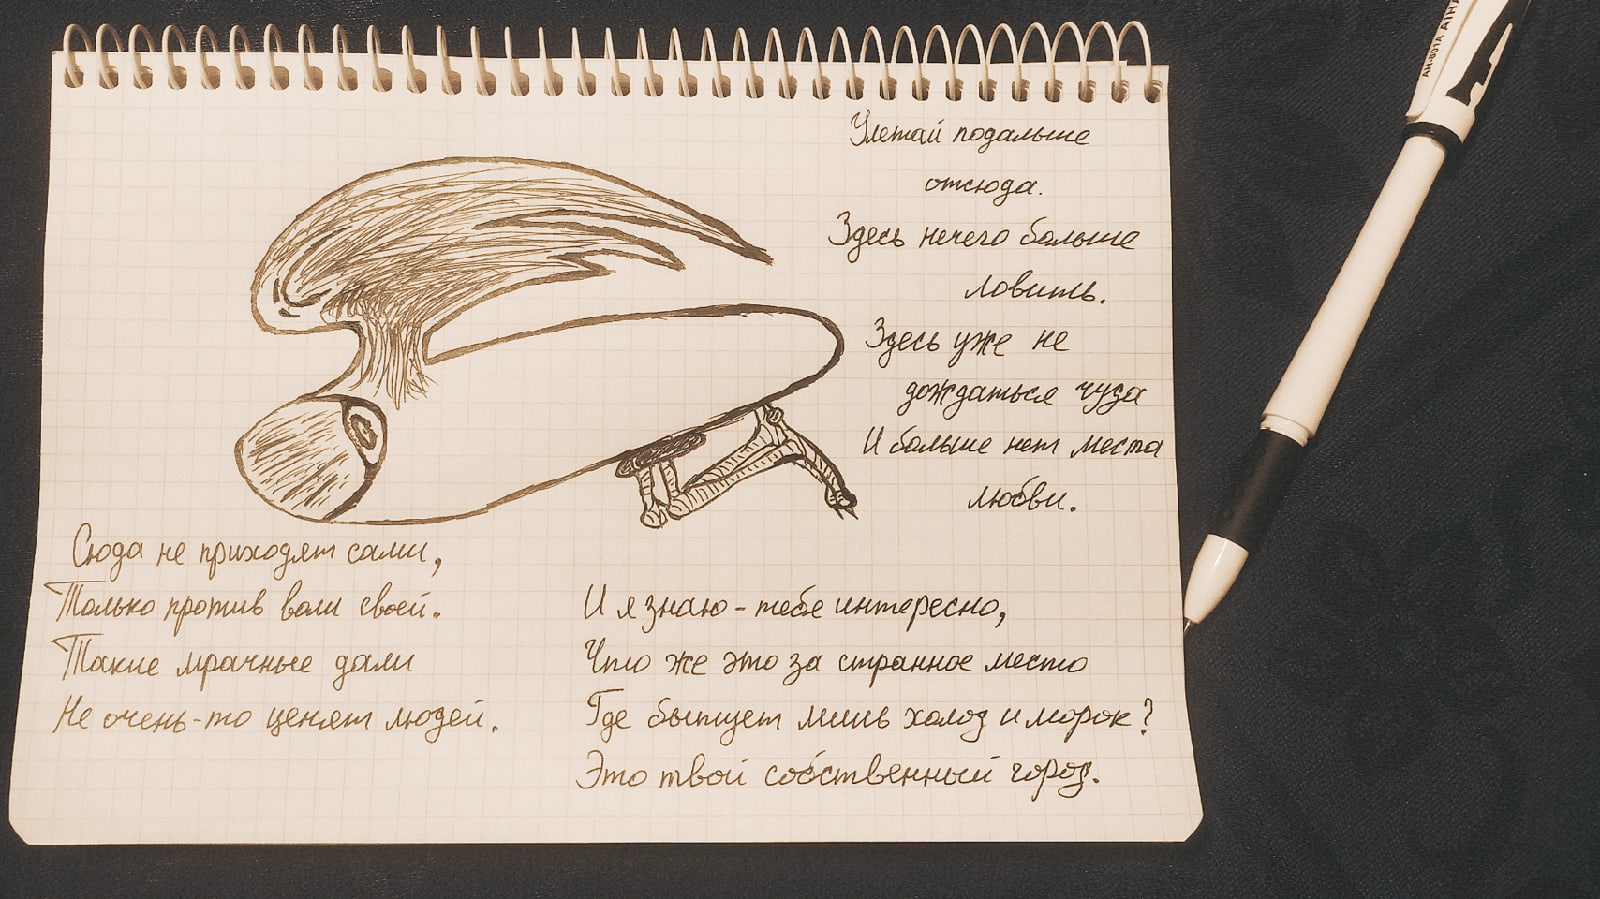 Улетай подальше
отсюда.
Здесь нечего больше
ловить.
Здесь уже не
дождаться чуда
И больше нет места
любви.
Сюда не приходят сами,
Только против воли своей.
Такие мрачные дали
Не очень-то ценят людей.
И я знаю - тебе интересно,
Что же это за странное место
Где бытует лишь холод и морок?
Это твой собственный город.